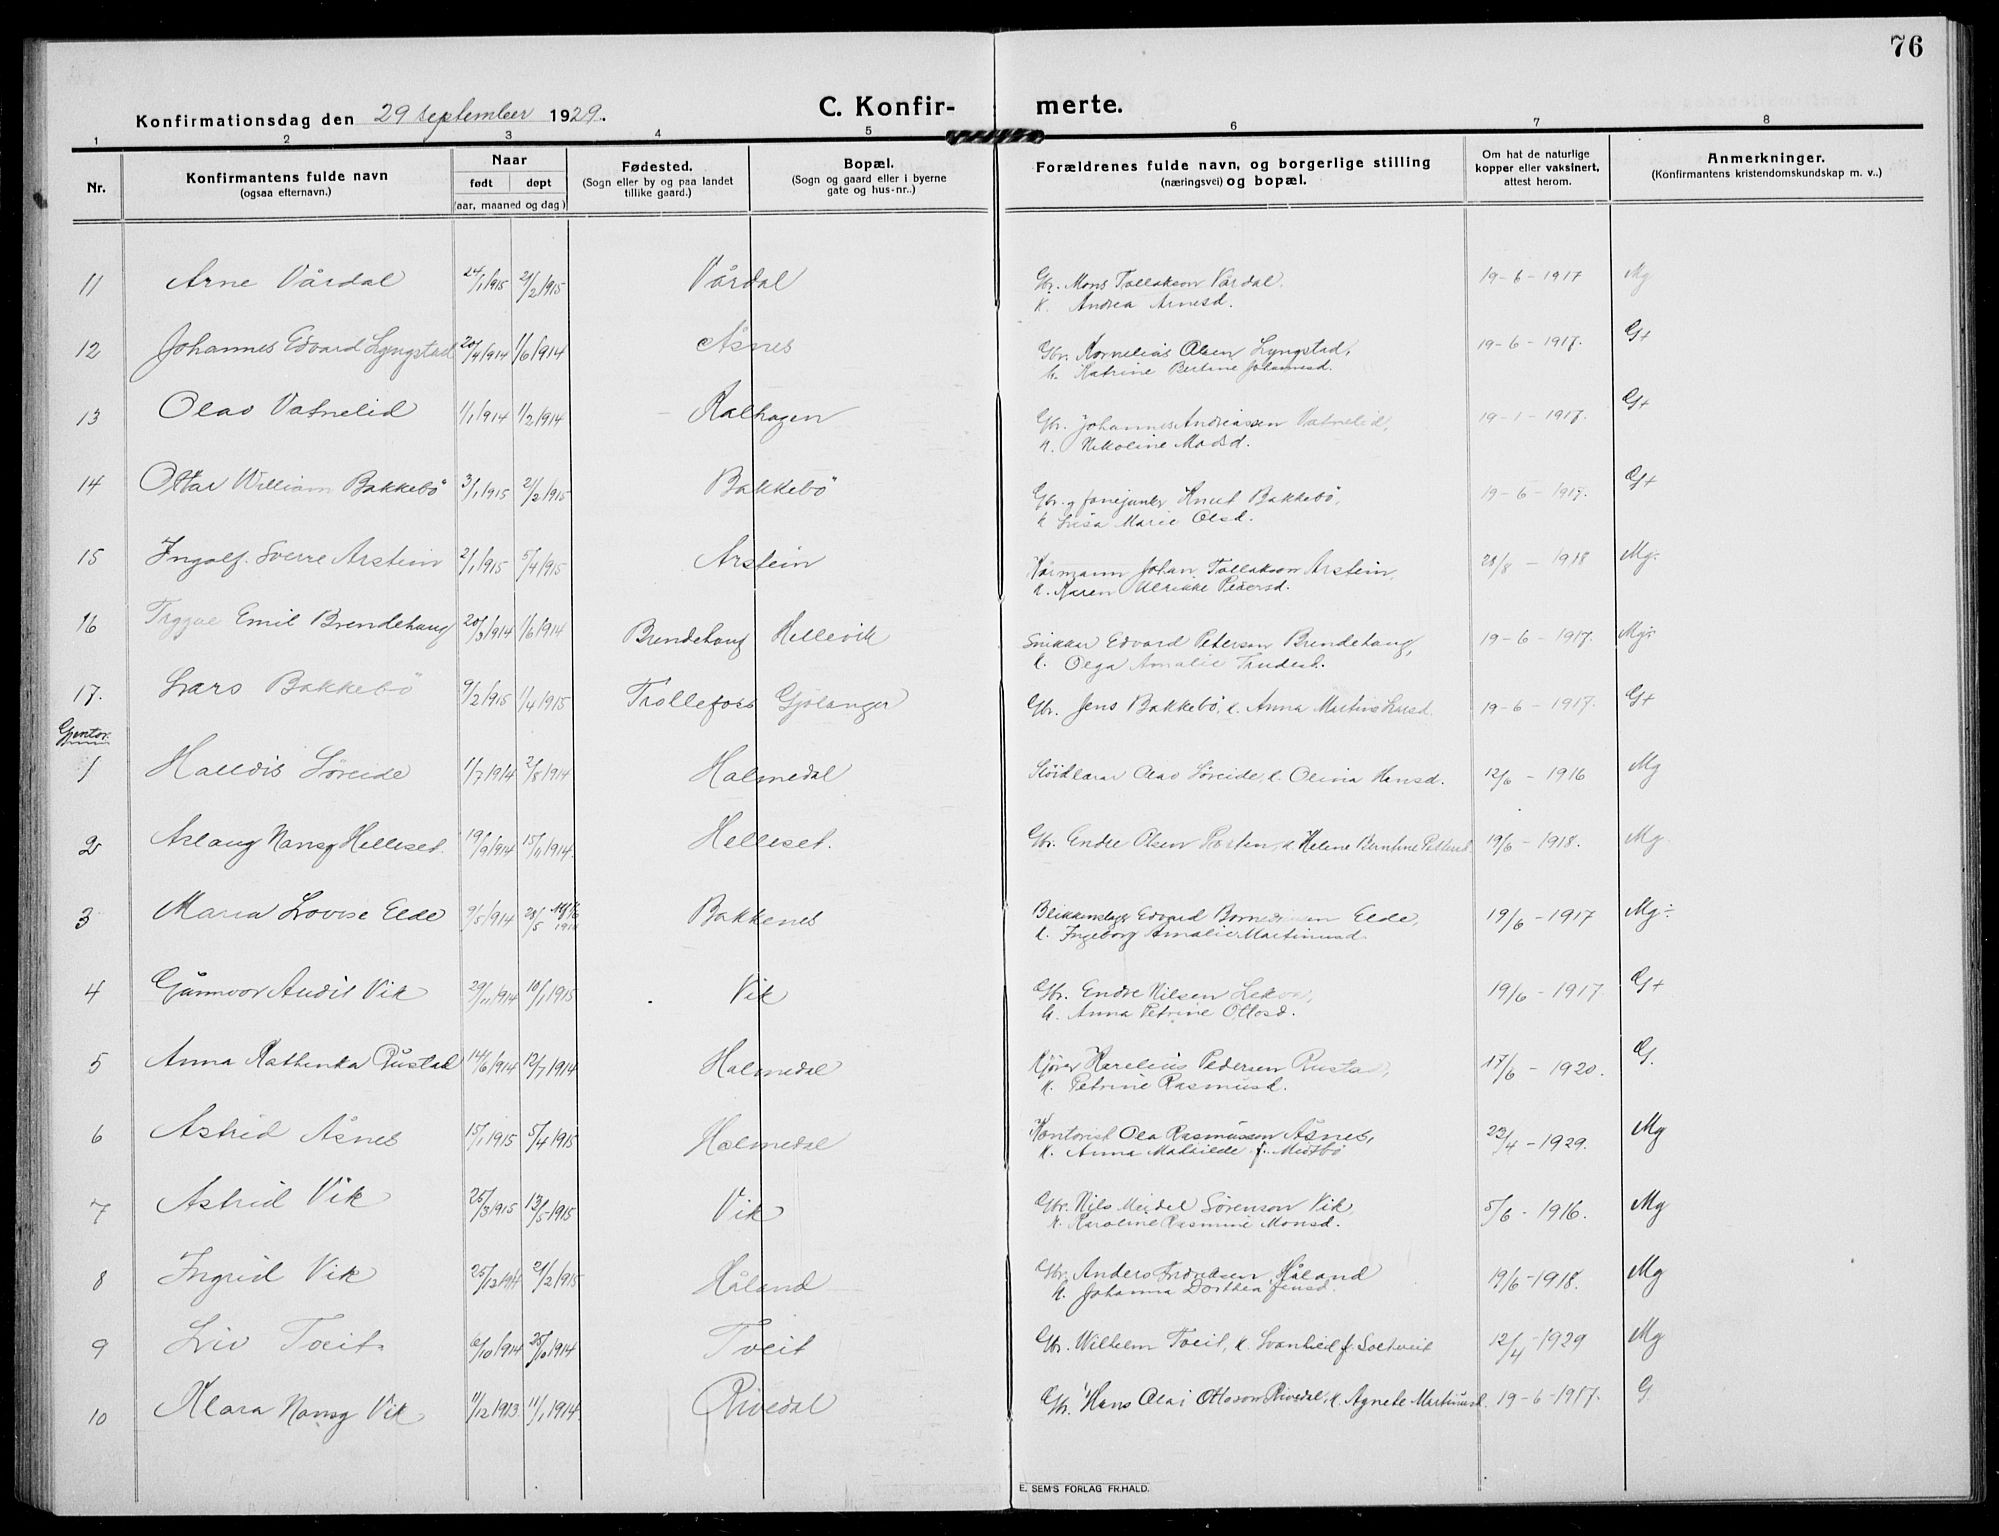 76
Konfirmationsdag den 29 september 1929.
C. Konfir- merte.
1 2 3 4 5 6 7 8
Nr.
Konfirmantens fulde navn
(ogsaa efternavn.)
Naar
født døpt
(aar, maaned og dag)
Fødested.
(Sogn eller by og paa landet
tillike gaard.)
Bopæl.
(Sogn og gaard eller i byerne
gate og hus-nr..)
Forældrenes fulde navn, og borgerlige stilling
(næringsvei) og bopæl.
Om hat de naturlige
kopper eller vaksinert,
attest herom.
Anmerkninger.
(Konfirmantens kristendomskundskap m. v..)
11 Arne Vårdal 24/1 1915 21/2 1915 Vårdal Gbr. Mons Tollakson Vårdal. 19-6-1917 Mg
k. Andrea Arnesd.
12 Johannes Edvard Lyngstad 20/4 1914 1/6 1914 Åsnes Gbr. Kornelius Olsen Lyngstad, 19-6-1917. G+
k. Katrine Bertine Johannesd.
13 Olav Vatnelid 1/1 1914 1/2 1914 Kalhagen Gbr. Johannes Andreassen Vatnelid, 19-1-1917. G+
k. Nikoline Madsd.
14 Ottar William Bakkebö 3/1 1915 2/2 1915 Bakkebö Gbr. g Knut Bakkebö, 19-6-1917. G+
k Lisa Marie Olsd.
15 Ingolf. Sverre Arstein 2/1 1915 5/4 1915 Arstein Johan Tollakson Arstein, 28/8 - 1918 Mg÷
k. Karen Ulrikke Pedersd.
16 Trygve Emil Brendehaug 20/3 1914 1/6 1914 Brendehaug Hellevik Snikkar Edvard Peterson Brendehaug, 19-6-1917. Mg÷
k. Olga Amalie
17. Lars Bakkebö 9/2 1915 1/4 1915 Trollefoss Gjölanger Gbr. Jens Bakkebö, k. Anna Martine Larsd. 19-6-1917. G+
Gjentor.
1 Halldis Söreide 11/7 1914 2/8 1914 Holmedal Slöidlærar Olav Söreide, k. Olivia Hansd. 12/6 - 1916 Mg
2 Aslaug Nansy Helleset. 19/9 1914 15/11 1914. Helleset. Gbr. Endre Olsen k Helene Berntine 19/6 - 1918. Mg
3 Maria Lovise Elde 9/5 1914 28/5 Bakkenes Blikkenslager Edvard Elde, 19/6 - 1917 Mg÷
k. Ingeborg Amalie Martinusd.
4 Gunnvor Audil Vik 29/11 1914 10/1 1915 Vik Gbr. Endre Nilsen 19/6 - 1917 G+
k. Anna Petrine Ottosd.
5 Anna Kathinka Rustad 14/6 1914 12/7 1914 Holmedal Pedersen Rustad, 17/6 - 1920. G.
k. Petrine Rasmusd.
6 Astrid Åsnes 15/1 1915 5/4 1915 Holmedal Kontorist Ola Rasmusson Åsnes, 23/4 - 1929. Mg
k. Anna Mathilde f. Midtbö
7 Astrid Vik 25/3 1915 13/5 1915 Vik Gbr. Nils Meidel Sörenson Vik, 5/6 - 1916. Mg
k. Karoline Rasmine Monsd.
8 Ingrid Vik 25/12 1914 21/2 1915 Håland Gbr. Anders Håland 19/6 - 1918. Mg
k. Johanna Dorthea Jensd.
9 Liv Tveit 6/10 1914 25/10 1914 Tveit Gbr. Wilhelm Tveit, k. Svanhild f. Soltveit 12/4 - 1929 Mg
10 Klara Nansy Vik 11/12 1913 11/1 1914 Rivedal Gbr. Hans Olai Ottoson Rivedal, k. Agnete Martinusd. 19-6-1917. G.
E. SEM'S FORLAG FR.HALD.